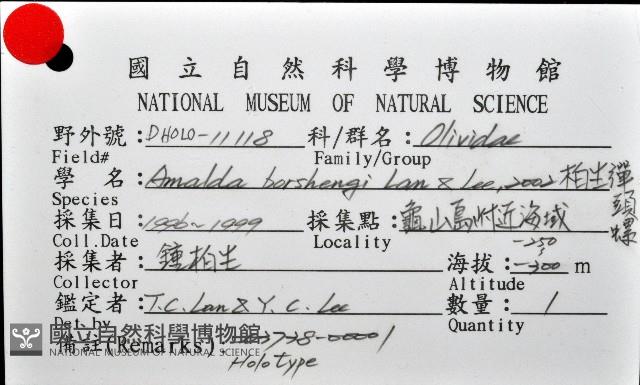 國立自然科學博物館
NATIONAL MUSEUM OF NATURAL SCIENCE
野外號：DHOLO-11118 科/群名：Olividae
Field# Family/Group
學 名：Amalda borshengi Lan & Lee, 2002 柏生彈頭螺
Species
採集日：1996~1999 採集點：龜山島附近海域
Coll.Date Locality
採集者：鍾柏生 海拔：-250~-300 m
Collector Altitude
鑑定者：T.C. Lan & Y. C. Lee 數量：1
Det.by Quantity
備註(Remarks) 3728-00001
Holotype
國立自然科學博物館
NATIONAL MUSEUM OF NATURAL SCIENCE